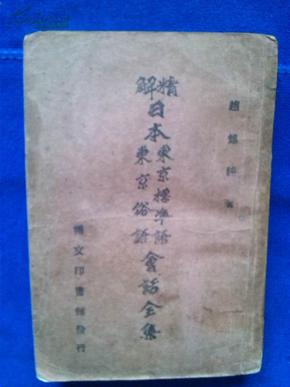 精解
日本
東京標準語
東京俗語
會話全集
趙 著
文印書館發行